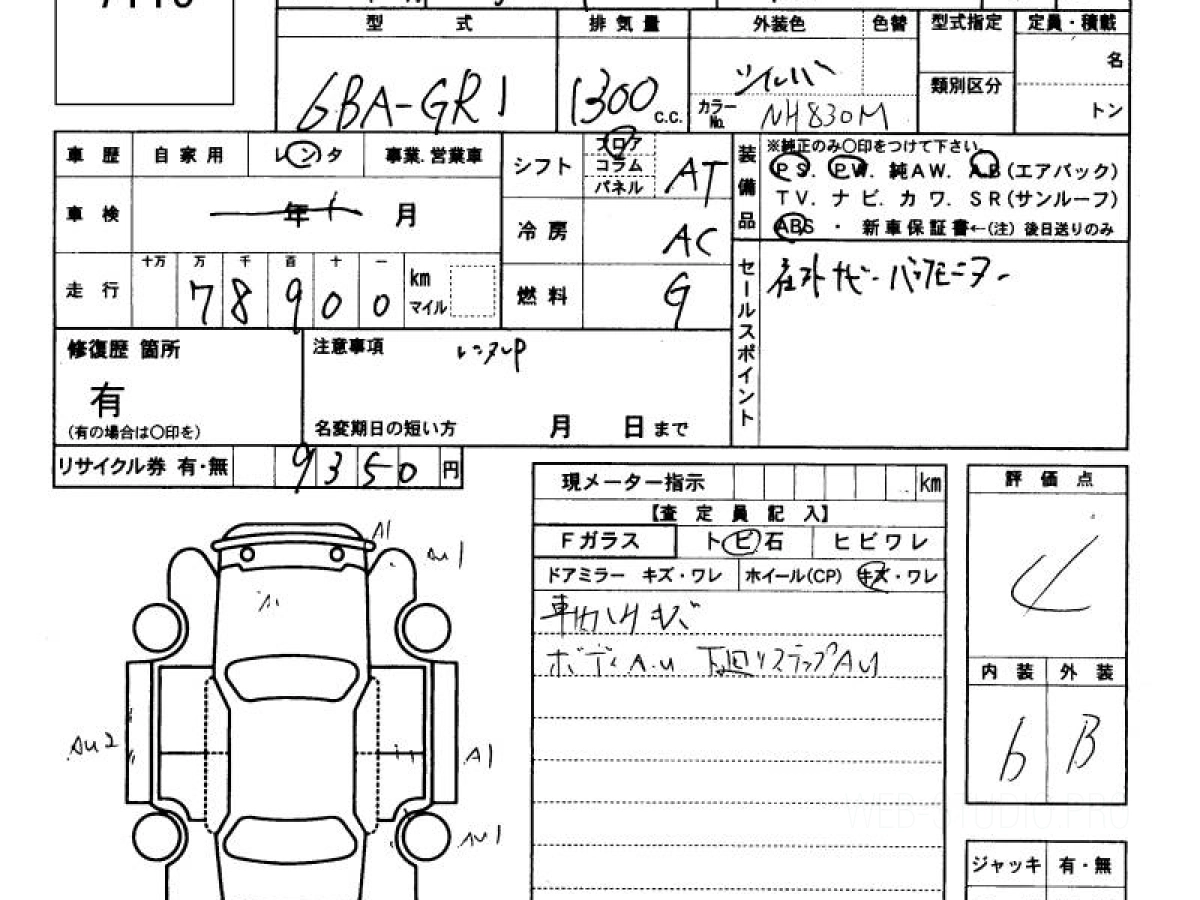 型 式 排気量 外装色 色替 型式指定 定員・積載
6BA-GR1 1300 c.c. シルバー 名
類別区分
カラーNo. NH830M トン
車歴 自家用 レンタ 事業.営業車
シフト フロア コラム パネル AT
装備品 ※純正のみ○印をつけて下さい。
PS. PW. 純AW. AB(エアバック)
TV. ナビ. カワ. SR(サンルーフ)
ABS ・ 新車保証書←(注)後日送りのみ
車検 年 月
冷房 AC
走行 十万 万 千 百 十 一
7 8 9 0 0 km マイル
燃料 G
セールスポイント 社外ナビ・バックモニター
修復歴 箇所
有
(有の場合は○印を)
注意事項 レンタUP
名変期日の短い方 月 日 まで
リサイクル券 有・無 9350 円
現メーター指示 km
【査定員記入】
Fガラス トビ石 ヒビワレ
ドアミラー キズ・ワレ ホイール(CP) キズ・ワレ
ボディAU 下回リステップAU
評価点
4
内装 外装
b B
A1
AU1
AU2
A1
AU1
ジャッキ 有・無
WEB-STUDIO.PRO